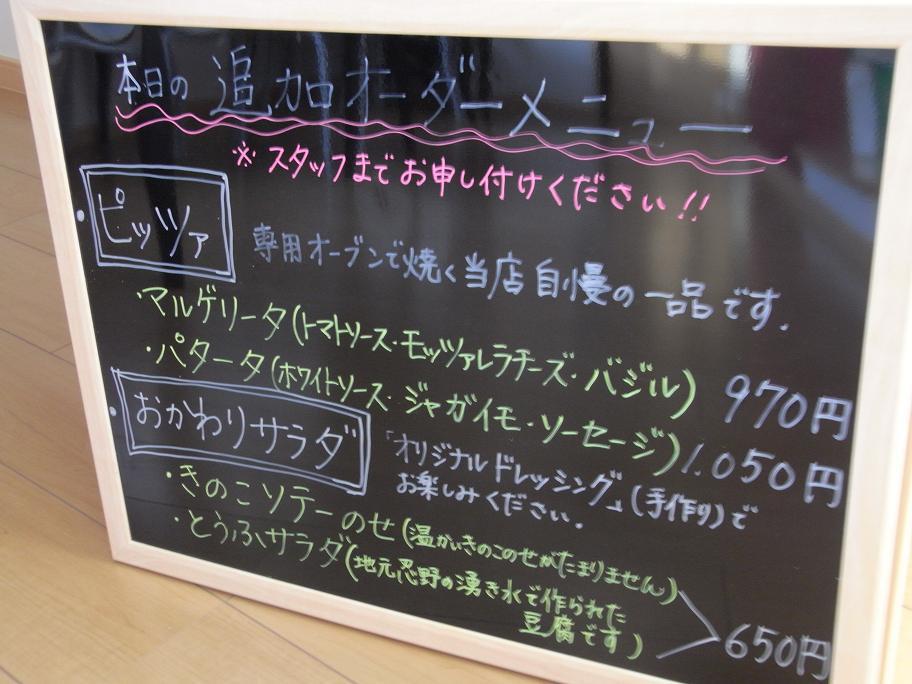 本日の 追加オーダーメニュー
※ スタッフまでお申し付けください!!
ピッツァ
専用オーブンで焼く当店自慢の一品です.
・マルゲリータ(トマトソース・モッツァレラチーズ・バジル) 970円
・パタータ(ホワイトソース・ジャガイモ・ソーセージ) 1.050円
おかわりサラダ
「オリジナルドレッシング」(手作り)で
お楽しみください.
・きのこソテーのせ(温かいきのこのせがたまりません)
・とうふサラダ(地元忍野の湧き水で作られた
豆腐です)
650円